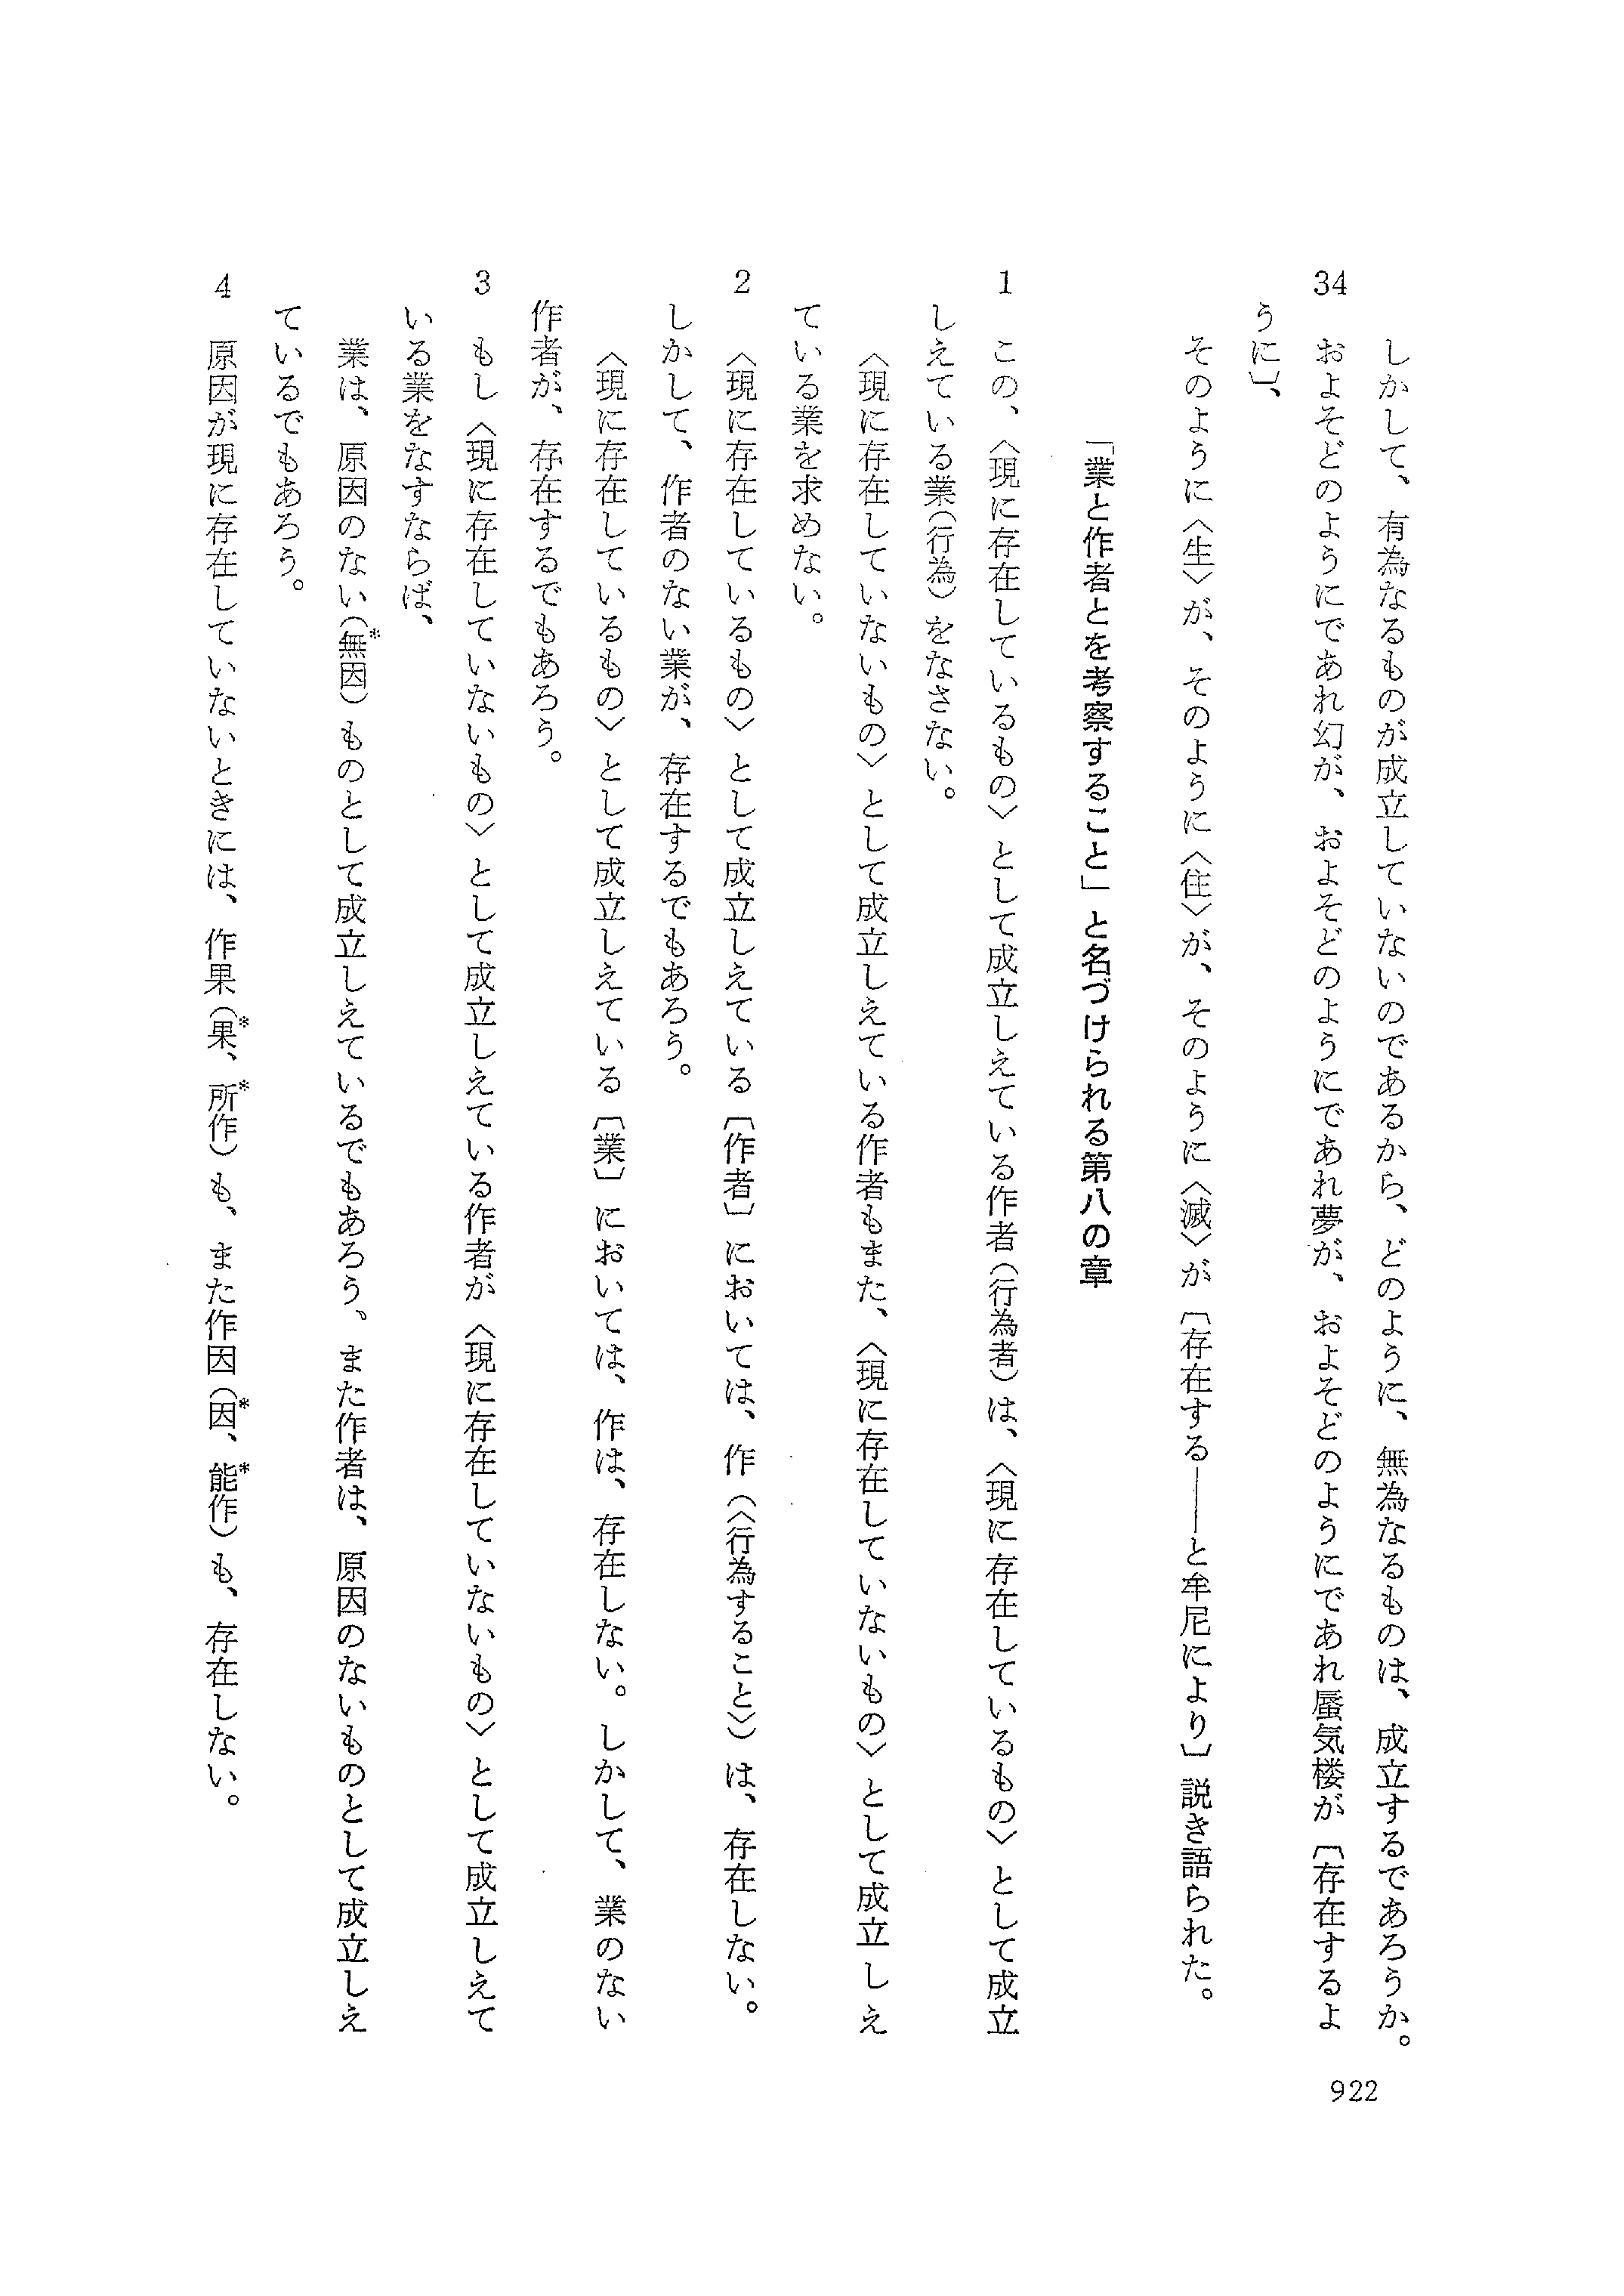 しかして、有為なるものが成立していないのであるから、どのように、無為なるものは、成立するであろうか。
34 およそどのようにであれ幻が、およそどのようにであれ夢が、およそどのようにであれ蜃気楼が〔存在するよ
うに〕、
そのように〈生〉が、そのように〈住〉が、そのように〈滅〉が〔存在する――と牟尼により〕説き語られた。
「業と作者とを考察すること」と名づけられる第八の章
1 この、〈現に存在しているもの〉として成立しえている作者(行為者)は、〈現に存在しているもの〉として成立
しえている業(行為)をなさない。
〈現に存在していないもの〉として成立しえている作者もまた、〈現に存在していないもの〉として成立しえ
ている業を求めない。
2 〈現に存在しているもの〉として成立しえている〔作者〕においては、作(〈行為すること〉)は、存在しない。
しかして、作者のない業が、存在するでもあろう。
〈現に存在しているもの〉として成立しえている〔業〕においては、作は、存在しない。しかして、業のない
作者が、存在するでもあろう。
3 もし〈現に存在していないもの〉として成立しえている作者が〈現に存在していないもの〉として成立しえて
いる業をなすならば、
業は、原因のない(無*因)ものとして成立しえているでもあろう。また作者は、原因のないものとして成立しえ
ているでもあろう。
4 原因が現に存在していないときには、作果(果*、所*作)も、また作因(因*、能*作)も、存在しない。
922